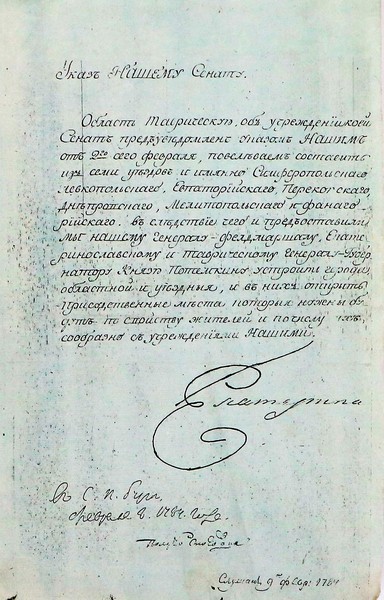 Указъ НАшему Сенату.
Область таврическую, объ учрежденiи коей
Сенатъ предъувѣдомленъ указомъ Нашимъ
отъ 2го сего февраля, повелѣваемъ составить
изъ семи уѣздовъ и имянно Симферопольскаго
Левкопольскаго, Евпаторiйскаго, Перекопскаго,
Днѣпровскаго, Мелитопольскаго и Фанаго
рiйскаго. въ слѣдствiе чего и предоставили
мы нашему Генералъ-фелдмаршалу, Екате
ринославскому и таврическому Генералъ-Губер
натору Князю Потемкину устроить городы
областной и уѣздныя, и въ нихъ открыть
присудственные мѣста которыя нужны бу
дутъ по свойству жителей и по числу ихъ
сообразно съ учрежденiями Нашими.
Екатерина
въ С. П. бургѣ
февраля 8. 1784. году.
Слушанъ 9го февр: 1784